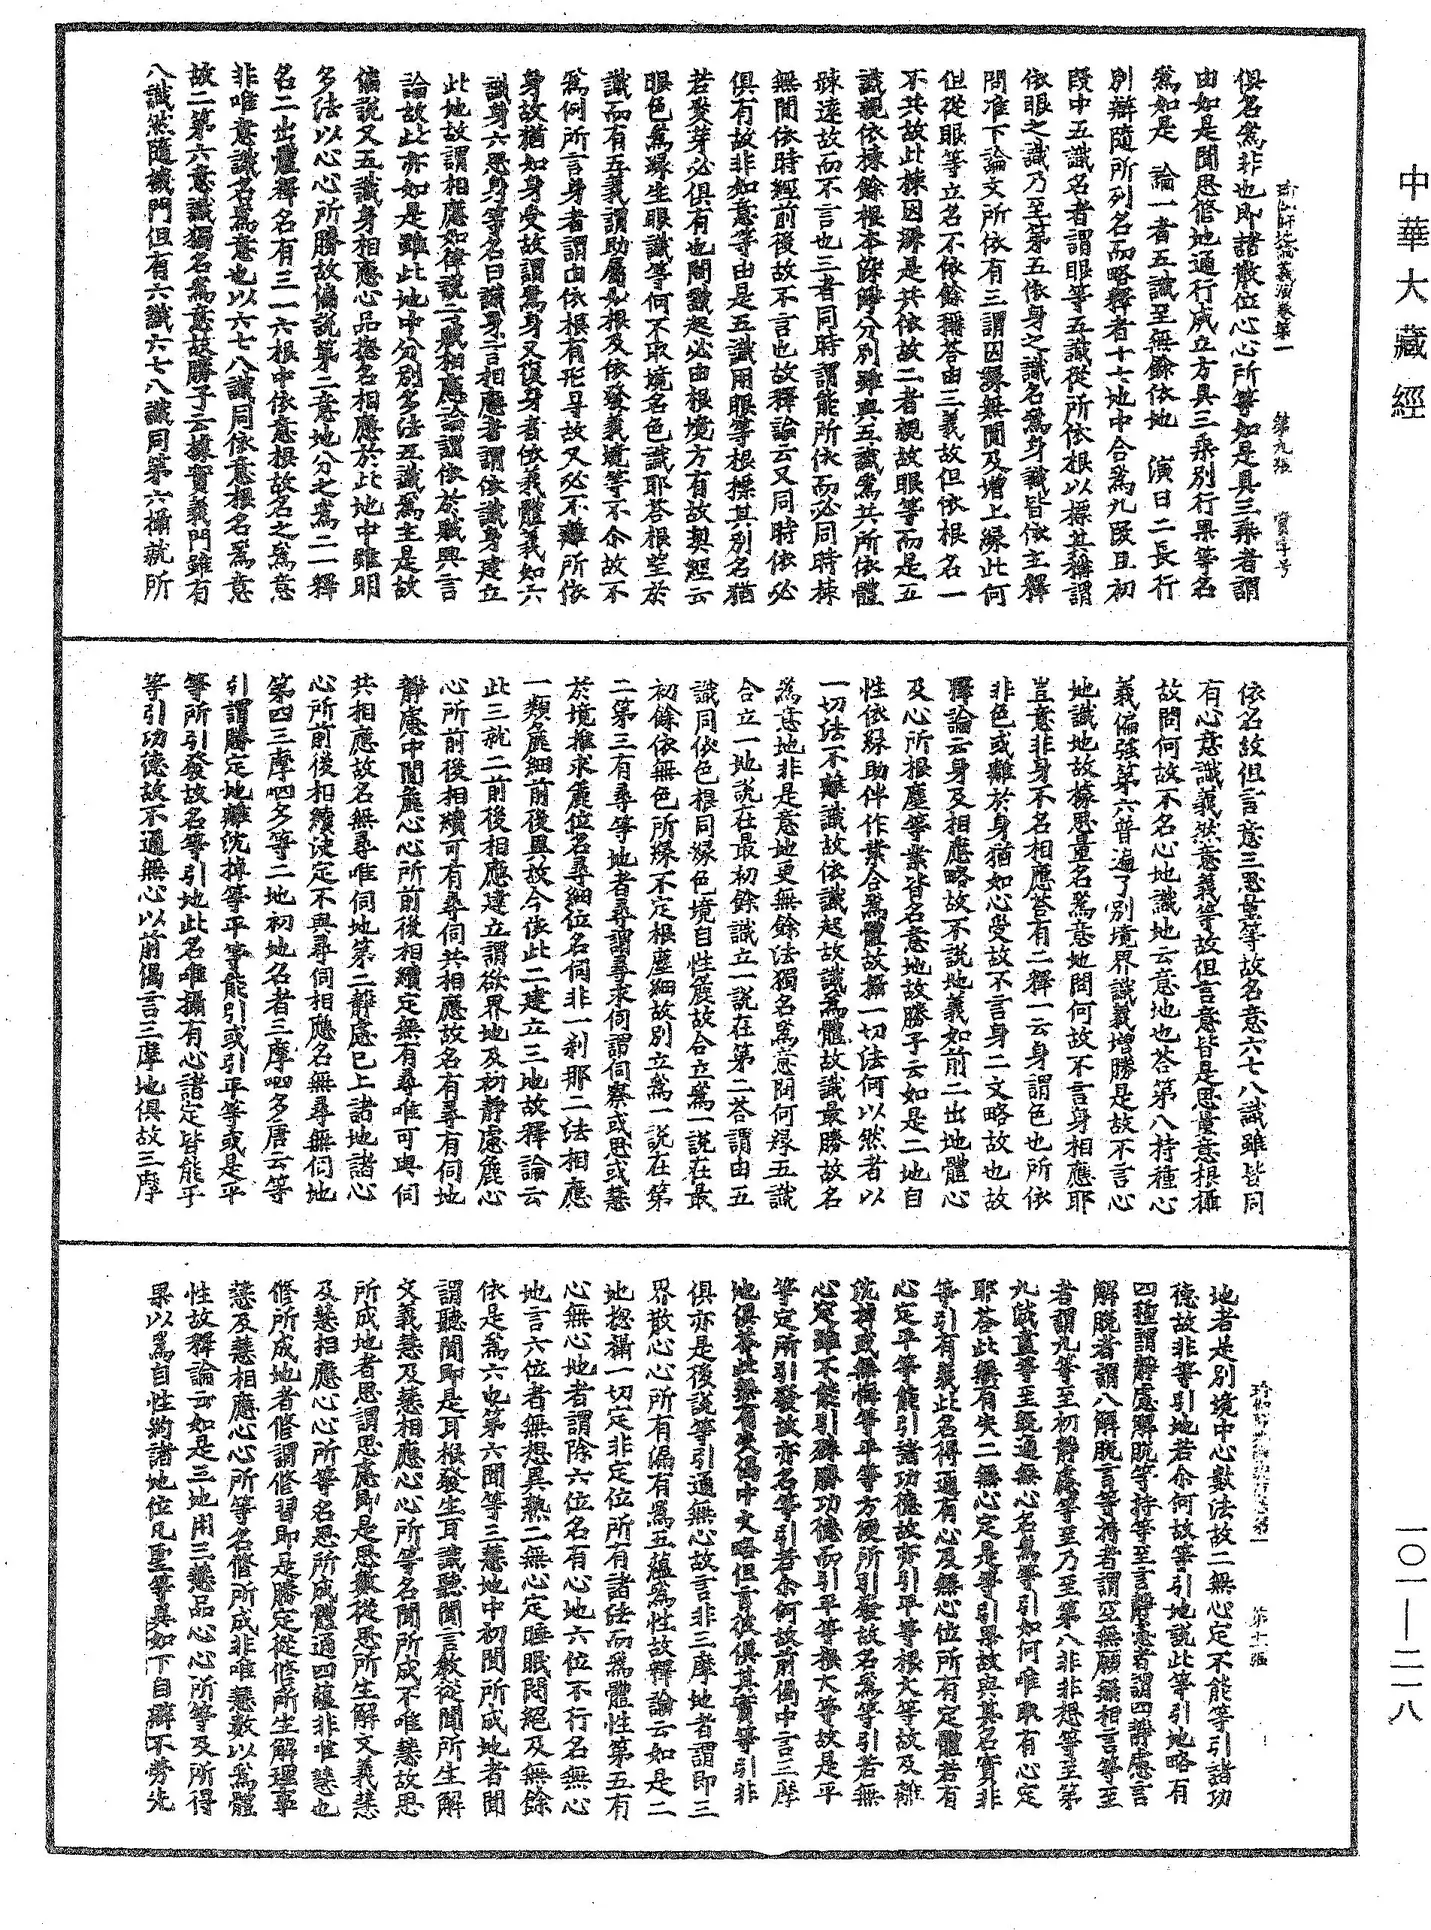 中華大藏經
瑜伽師地論義演卷第一 第九張 寶字号
俱名為非也即諸散位心心所等如是具三乘者謂
由如是聞思修地通行成立方具三乘別行果等名
為如是 論一者五識至無餘依地 演曰二長行
別辯隨所列名而略釋者十七地中合為九段且初
段中五識名者謂眼等五識從所依根以標其稱謂
依眼之識乃至第五依身之識名為身識皆依主釋
問准下論文所依有三謂因緣無間及增上緣此何
但從眼等立名不依餘稱荅由三義故但依根名一
不共故此揀因緣是共依故二者親故眼等而是五
識親依揀餘根本染淨分別雖與五識為共所依體
踈遠故而不言也三者同時謂能所依而必同時揀
無間依時經前後故不言也故釋論云又同時依必
俱有故非如意等由是五識用眼等根標其別名猶
若麥芽必俱有也問識起必由根境方有故契經云
眼色為緣生眼識等何不取境名色識耶荅根望於
識而有五義謂助屬如根及依發義境等不尒故不
為例所言身者謂由依根有形㝵故又必不離所依
身故猶如身受故謂為身又復身者依義體義如六
識身六思身等名曰識身言相應者謂依識身建立
此地故謂相應如律說言賊相應論謂依於賊興言
論故此亦如是雖此地中分別多法五識為主是故
偏說又五識身相應心品揔名相應於此地中雖明
多法以心心所勝故偏說第二意地分之為二一釋
名二出體釋名有三一六根中依意根故名之為意
非唯意識名為意也以六七八識同依意根名為意
故二第六意識獨名為意故勝子云據實義門雖有
八識然隨機門但有六識六七八識同第六攝就所
依名故但言意三思量等故名意六七八識雖皆同
有心意識義然意義等故但言意皆是思量意根攝
故問何故不名心地識地云意地也荅第八持種心
義偏強第六普遍了別境界識義增勝是故不言心
地識地故據思量名為意地問何故不言身相應耶
豈意非身不名相應荅有二釋一云身謂色也所依
非色或離於身猶如心受故不言身二文略故也故
釋論云身及相應略故不說地義如前二出地體心
及心所根塵等業皆名意地故勝子云如是二地自
性依緣助伴作業合為體故攝一切法何以然者以
一切法不離識故依識起故識為體故識最勝故名
為意地非是意地更無餘法獨名為意問何緣五識
合立一地說在最初餘識立一說在第二荅謂由五
識同依色根同緣色境自性麁故合立為一說在最
初餘依無色所緣不定根塵細故別立為一說在第
二第三有尋等地者尋謂尋求伺謂伺察或思或慧
於境推求麁位名尋細位名伺非一刹那二法相應
一類麁細前後異故今依此二建立三地故釋論云
此三就二前後相應建立謂欲界地及初靜慮麁心
心所前後相續可有尋伺共相應故名有尋有伺地
靜慮中間麁心心所前後相續定無有尋唯可與伺
共相應故名無尋唯伺地第二靜慮已上諸地諸心
心所前後相續決定不與尋伺相應名無尋無伺地
第四三摩呬多等二地初地名者三摩呬多唐云等
引謂勝定地離沈掉等平等能引或引平等或是平
等所引發故名等引地此名唯攝有心諸定皆能平
等引功德故不通無心以前偈言三摩地俱故三摩
瑜伽師地論義演卷第一 第十張
地者是別境中心數法故二無心定不能等引諸功
德故非等引地若尒何故等引地說此等引地略有
四種謂靜慮解脫等持等至言靜慮者謂四靜慮言
解脫者謂八解脫言等持者謂空無願無相言等至
者謂九等至初靜慮等至乃至第八非非想等至第
九滅盡等至旣通無心名為等引如何唯取有心定
耶荅此無有失二無心定是等引果故與其名實非
等引有義此名得通有心及無心位所有定體若有
心定平等能引諸功德故亦引平等根大等故及離
沈掉或無悔等平等方便所引發故名為等引若無
心定雖不能引殊勝功德而引平等根大等故是平
等定所引發故亦名等引若尒何故前偈中言三摩
地俱荅此無有失偈中文略但言彼俱其實等引非
俱亦是後說等引通無心故言非三摩地者謂即三
界散心心所有漏有為五蘊為性故釋論云如是二
地揔攝一切定非定位所有諸法而為體性第五有
心無心地者謂除六位名有心地六位不行名無心
地言六位者無想異熟二無心定睡眠悶絕及無餘
依是為六也第六聞等三慧地中初聞所成地者聞
謂聽聞即是耳根發生耳識聽聞言教從聞所生解
文義慧及慧相應心心所等名聞所成不唯慧故思
所成地者思謂思慮即是思數從思所生解文義慧
及慧相應心心所等名思所成體通四蘊非唯慧也
修所成地者修謂修習即是勝定從修所生解理事
慧及慧相應心心所等名修所成非唯慧數以為體
性故釋論云如是三地用三慧品心心所等及所得
果以為自性約諸地位凡聖等異如下自辯不勞先
一〇一—二一八